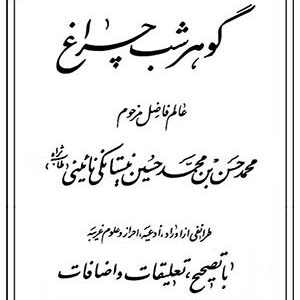 گوهر شب چراغ
عالم فاضل مرحوم
محمد حسن بن محمد حسین نیستانکی نائینی (طاب ثراه)
طرائفی از اوراد، ادعیه، احراز و علوم غریبه
با تصحیح، تعلیقات و اضافات